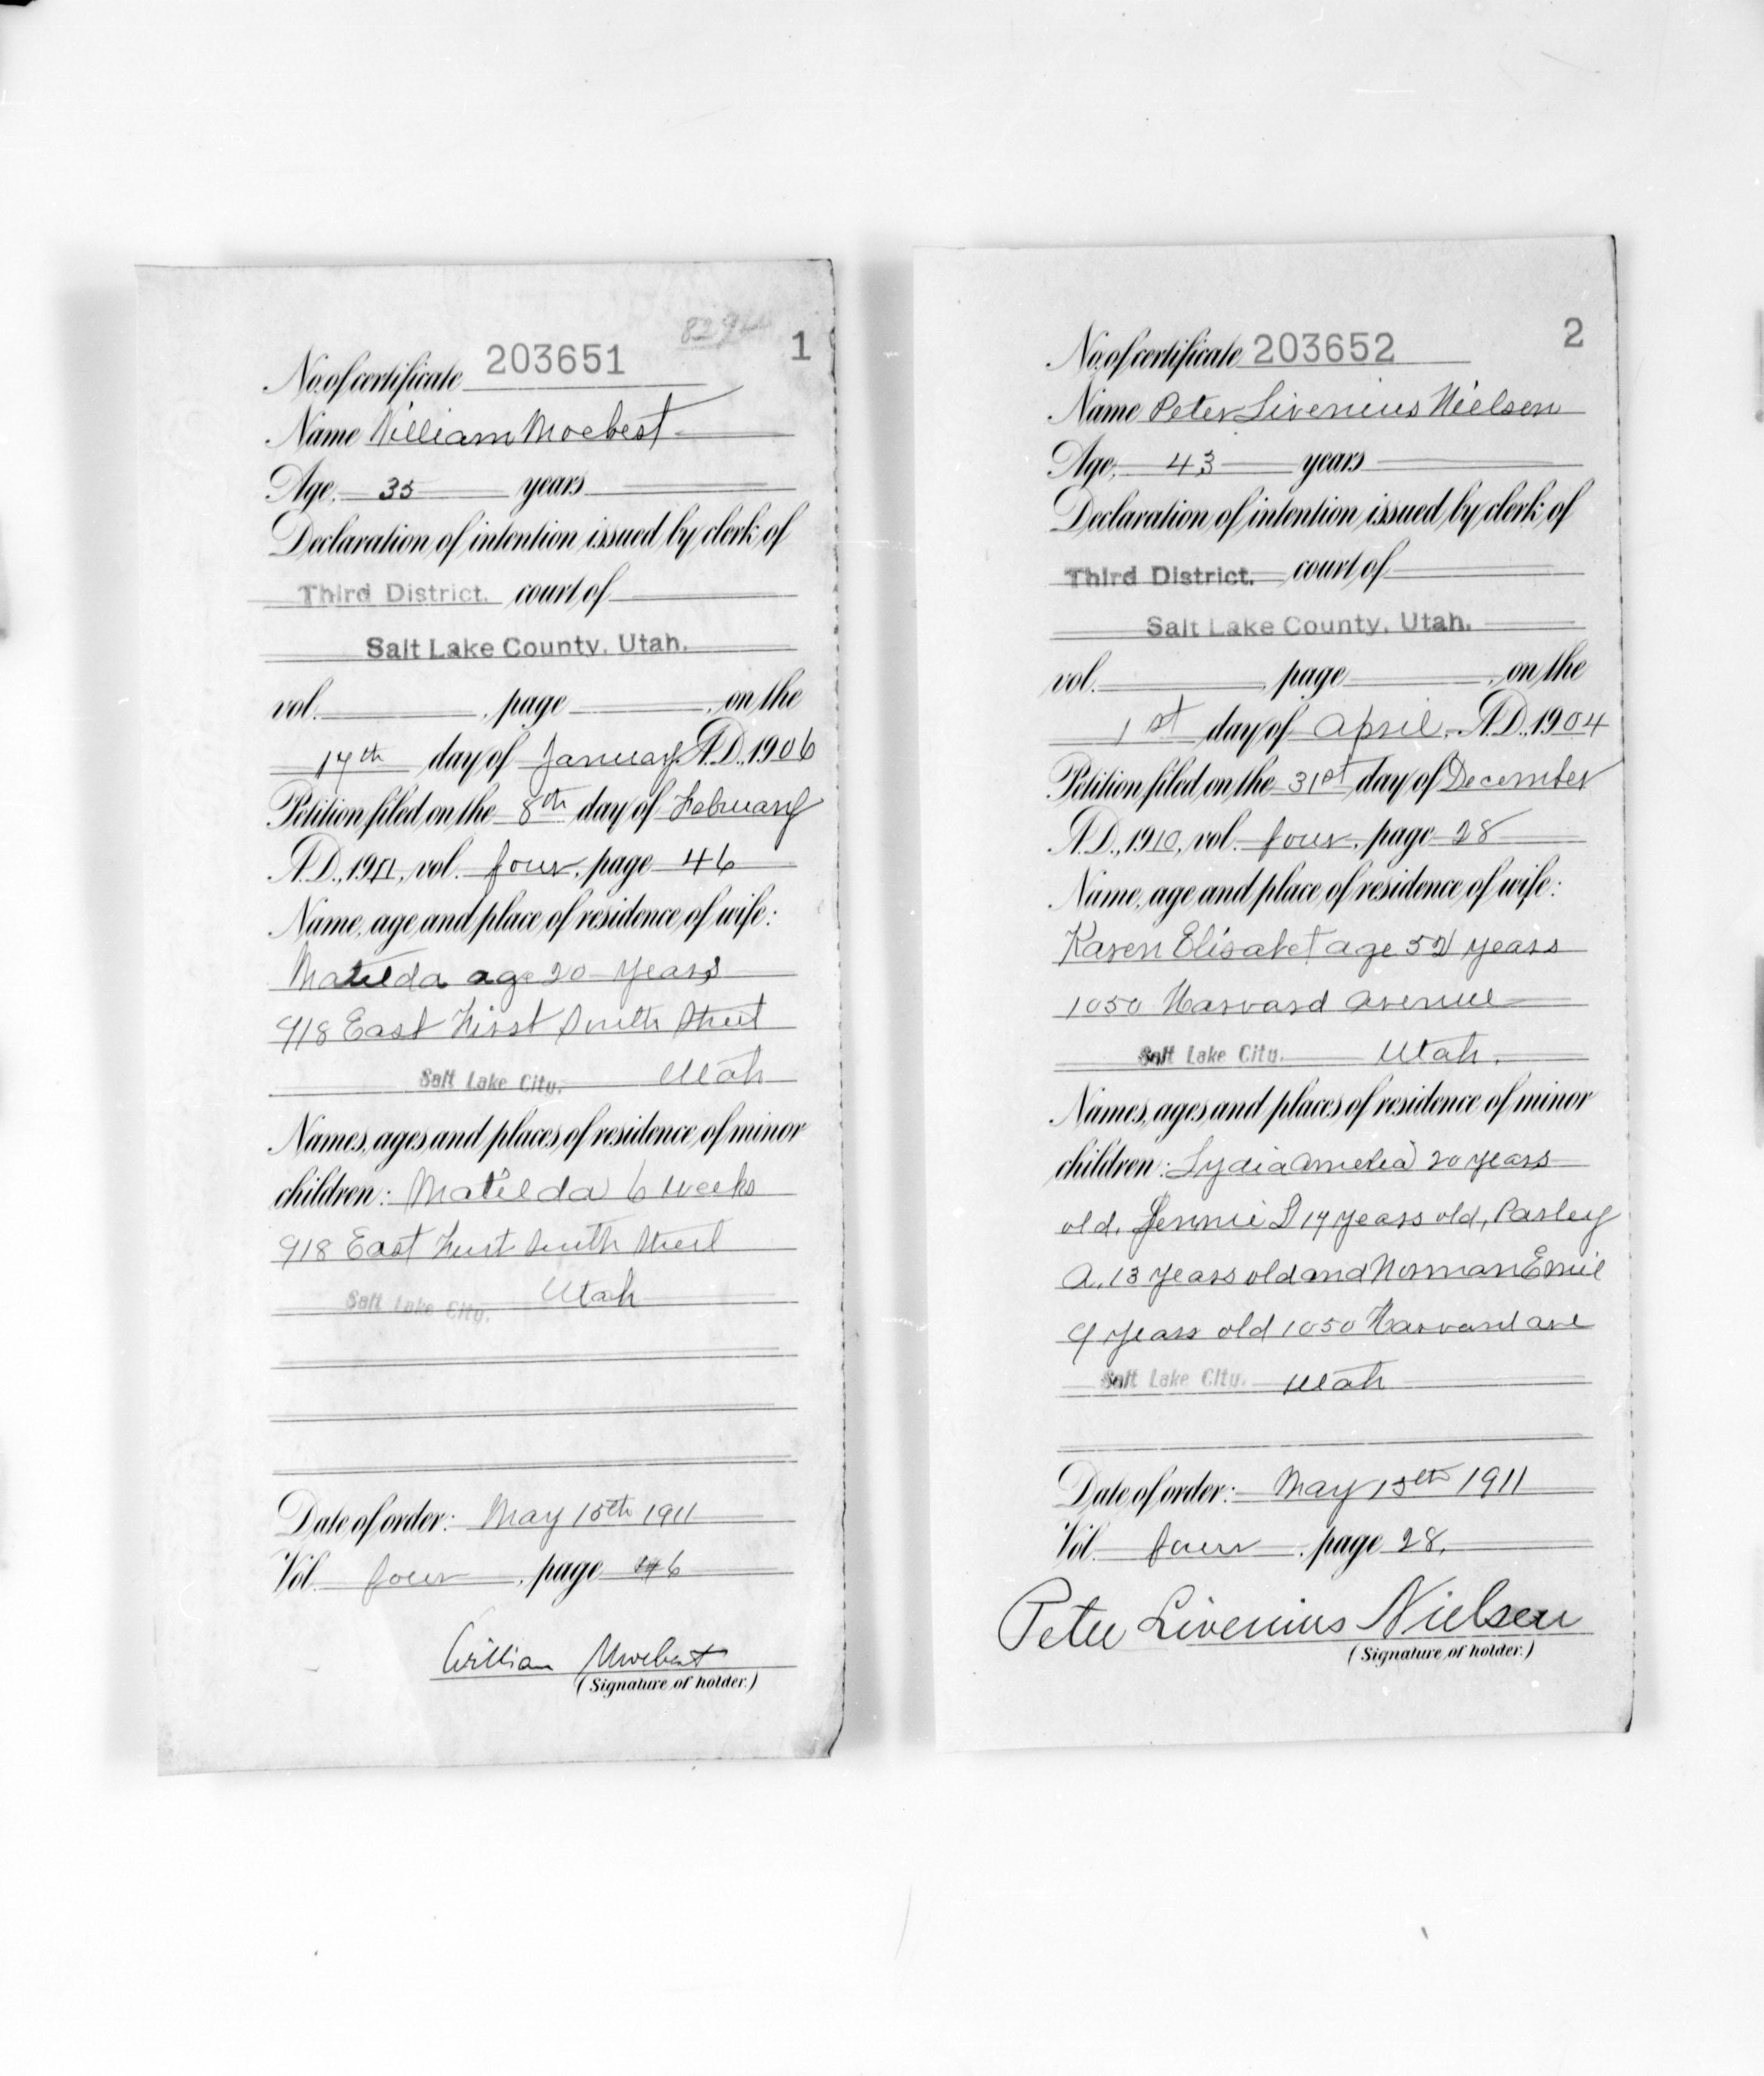 8294
1
No. of certificate 203651
Name William Moebest
Age, 35 years
Declaration of intention issued by clerk of
Third District. court of
Salt Lake County, Utah.
vol. , page , on the
17th day of January A.D., 1906
Petition filed on the 8th day of February
A.D., 1911, vol. four, page 46
Name, age and place of residence of wife:
Matilda age 20 years
918 East First South Street
Salt Lake City. Utah
Names, ages and places of residence of minor
children: Matilda 6 weeks
918 East First South Street
Salt Lake City. Utah
Date of order: May 15th 1911
Vol. four, page 46
William Moebest
(Signature of holder.)
2
No. of certificate 203652
Name Peter Livenius Nielsen
Age, 43 years
Declaration of intention issued by clerk of
Third District. court of
Salt Lake County, Utah.
vol. , page , on the
1st day of April, A.D., 1904
Petition filed on the 31st day of December
A.D., 1910, vol. four, page 28
Name, age and place of residence of wife:
Karen Elisabet age 52 years
1050 Harvard avenue
Salt Lake City. Utah.
Names, ages and places of residence of minor
children: Lydia Amelia 20 years
old, Jennie L 17 years old, Parley
A., 13 years old and Norman Emil
9 years old 1050 Harvard ave
Salt Lake City. Utah
Date of order: May 15th 1911
Vol. four, page 28.
Peter Livenius Nielsen
(Signature of holder.)